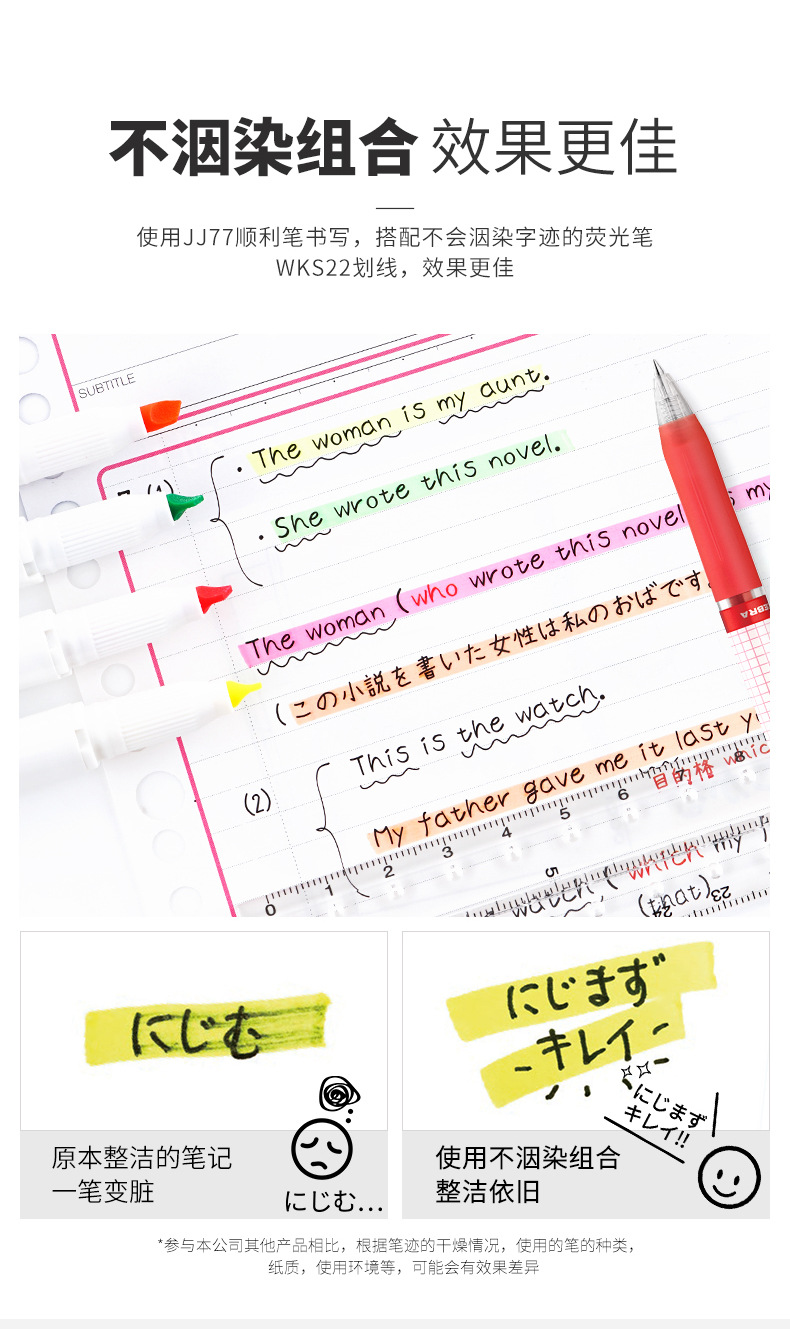 不洇染组合 效果更佳
使用JJ77顺利笔书写，搭配不会洇染字迹的荧光笔
WKS22划线，效果更佳
SUBTITLE
· The woman is my aunt.
· She wrote this novel.
The woman (who wrote this novel) is my
(この小説を書いた女性は私のおばです。
ZEBRA
(2)
This is the watch.
My father gave me it last y
目的格 which
0 1 2 3 4 5 6 7 8
watch, (which my
(that)
5
24 23
にじむ
にじまず
キレイ
原本整洁的笔记
一笔变脏
にじむ…
使用不洇染组合
整洁依旧
にじまず
キレイ!!
*参与本公司其他产品相比，根据笔迹的干燥情况，使用的笔的种类，
纸质，使用环境等，可能会有效果差异